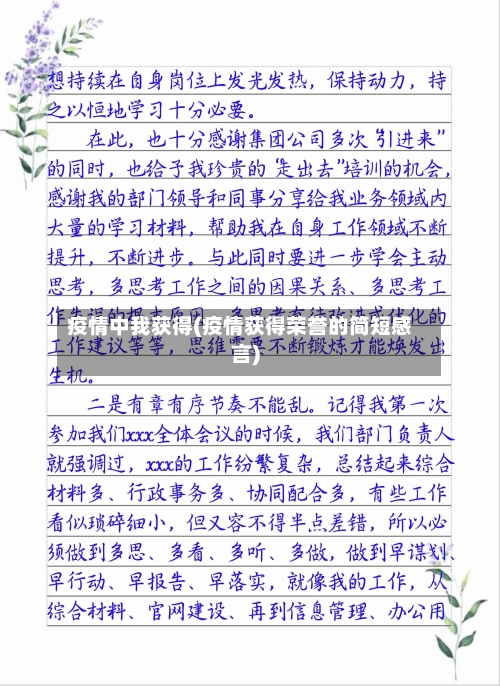 想持续在自身岗位上发光发热，保持动力，持
之以恒地学习十分必要。
在此，也十分感谢集团公司多次“引进来”
的同时，也给予我珍贵的“走出去”培训的机会，
感谢我的部门领导和同事分享给我业务领域内
大量的学习材料，帮助我在自身工作领域不断
提升，不断进步。与此同时要进一步学会主动
思考，多思考工作之间的因果关系、多思考工
作失误的根本原因、
疫情中我获得(疫情获得荣誉的简短感
言)
工作建议等等，思维需要不断锻炼才能焕发出
生机。
二是有章有序节奏不能乱。记得我第一次
参加我们xxx全体会议的时候，我们部门负责人
就强调过，xxx的工作纷繁复杂，总结起来综合
材料多、行政事务多、协同配合多，有些工作
看似琐碎细小，但又容不得半点差错，所以必
须做到多思、多看、多听、多做，做到早谋划、
早行动、早报告、早落实，就像我的工作，从
综合材料、官网建设、再到信息管理、办公用